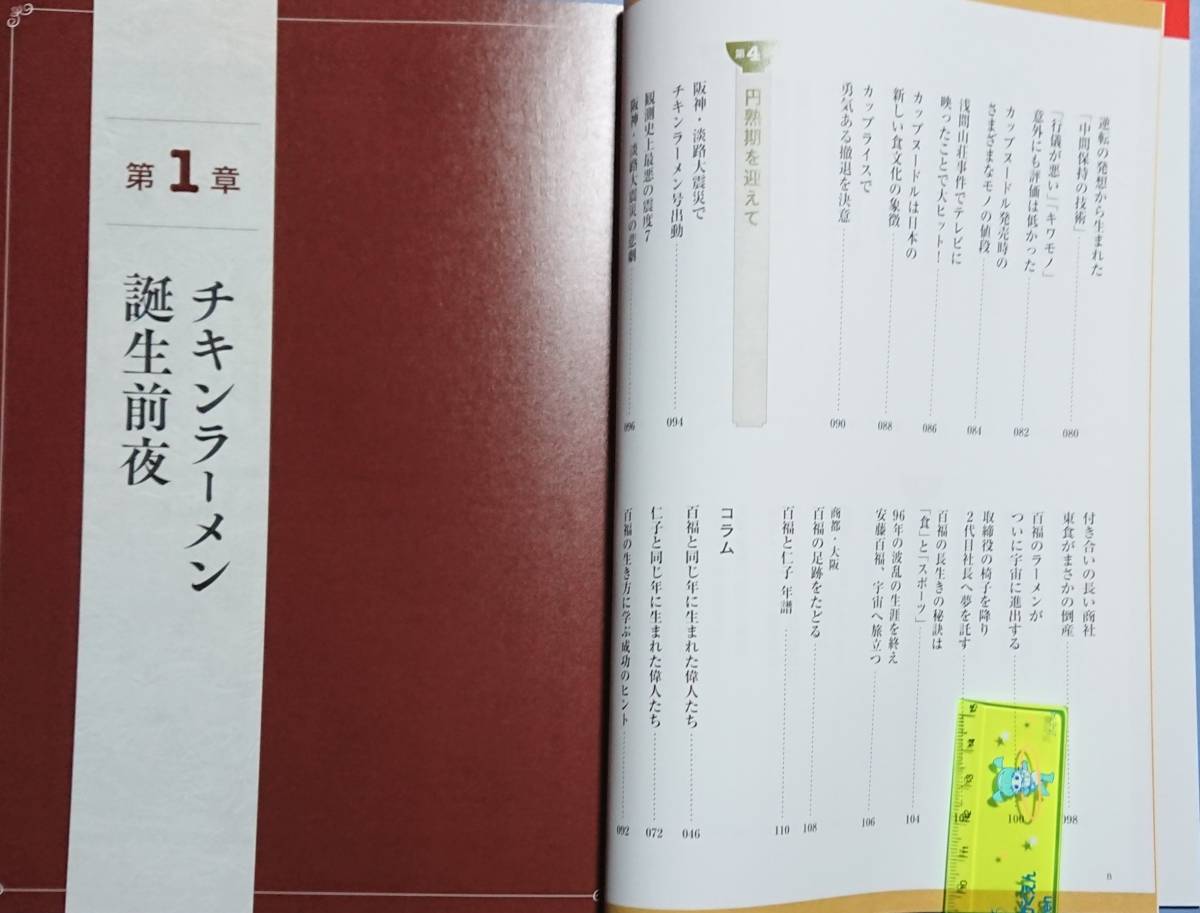 逆転の発想から生まれた
「中間保持の技術」 080
「行儀が悪い」「キワモノ」
意外にも評価は低かった 082
カップヌードル発売時の
さまざまなモノの値段 084
浅間山荘事件でテレビに
映ったことで大ヒット! 086
カップヌードルは日本の
新しい食文化の象徴 088
カップライスで
勇気ある撤退を決意 090
第4章
円熟期を迎えて
阪神・淡路大震災で
チキンラーメン号出動 094
観測史上最悪の震度7
阪神・淡路大震災の悲劇 096
付き合いの長い商社
東食がまさかの倒産 098
百福のラーメンが
ついに宇宙に進出する 100
取締役の椅子を降り
2代目社長へ夢を託す
百福の長生きの秘訣は
「食」と「スポーツ」 104
96年の波乱の生涯を終え
安藤百福、宇宙へ旅立つ 106
商都・大阪
百福の足跡をたどる 108
百福と仁子 年譜 110
コラム
百福と同じ年に生まれた偉人たち 046
仁子と同じ年に生まれた偉人たち 072
百福の生き方に学ぶ成功のヒント 092
8
第1章
チキンラーメン
誕生前夜